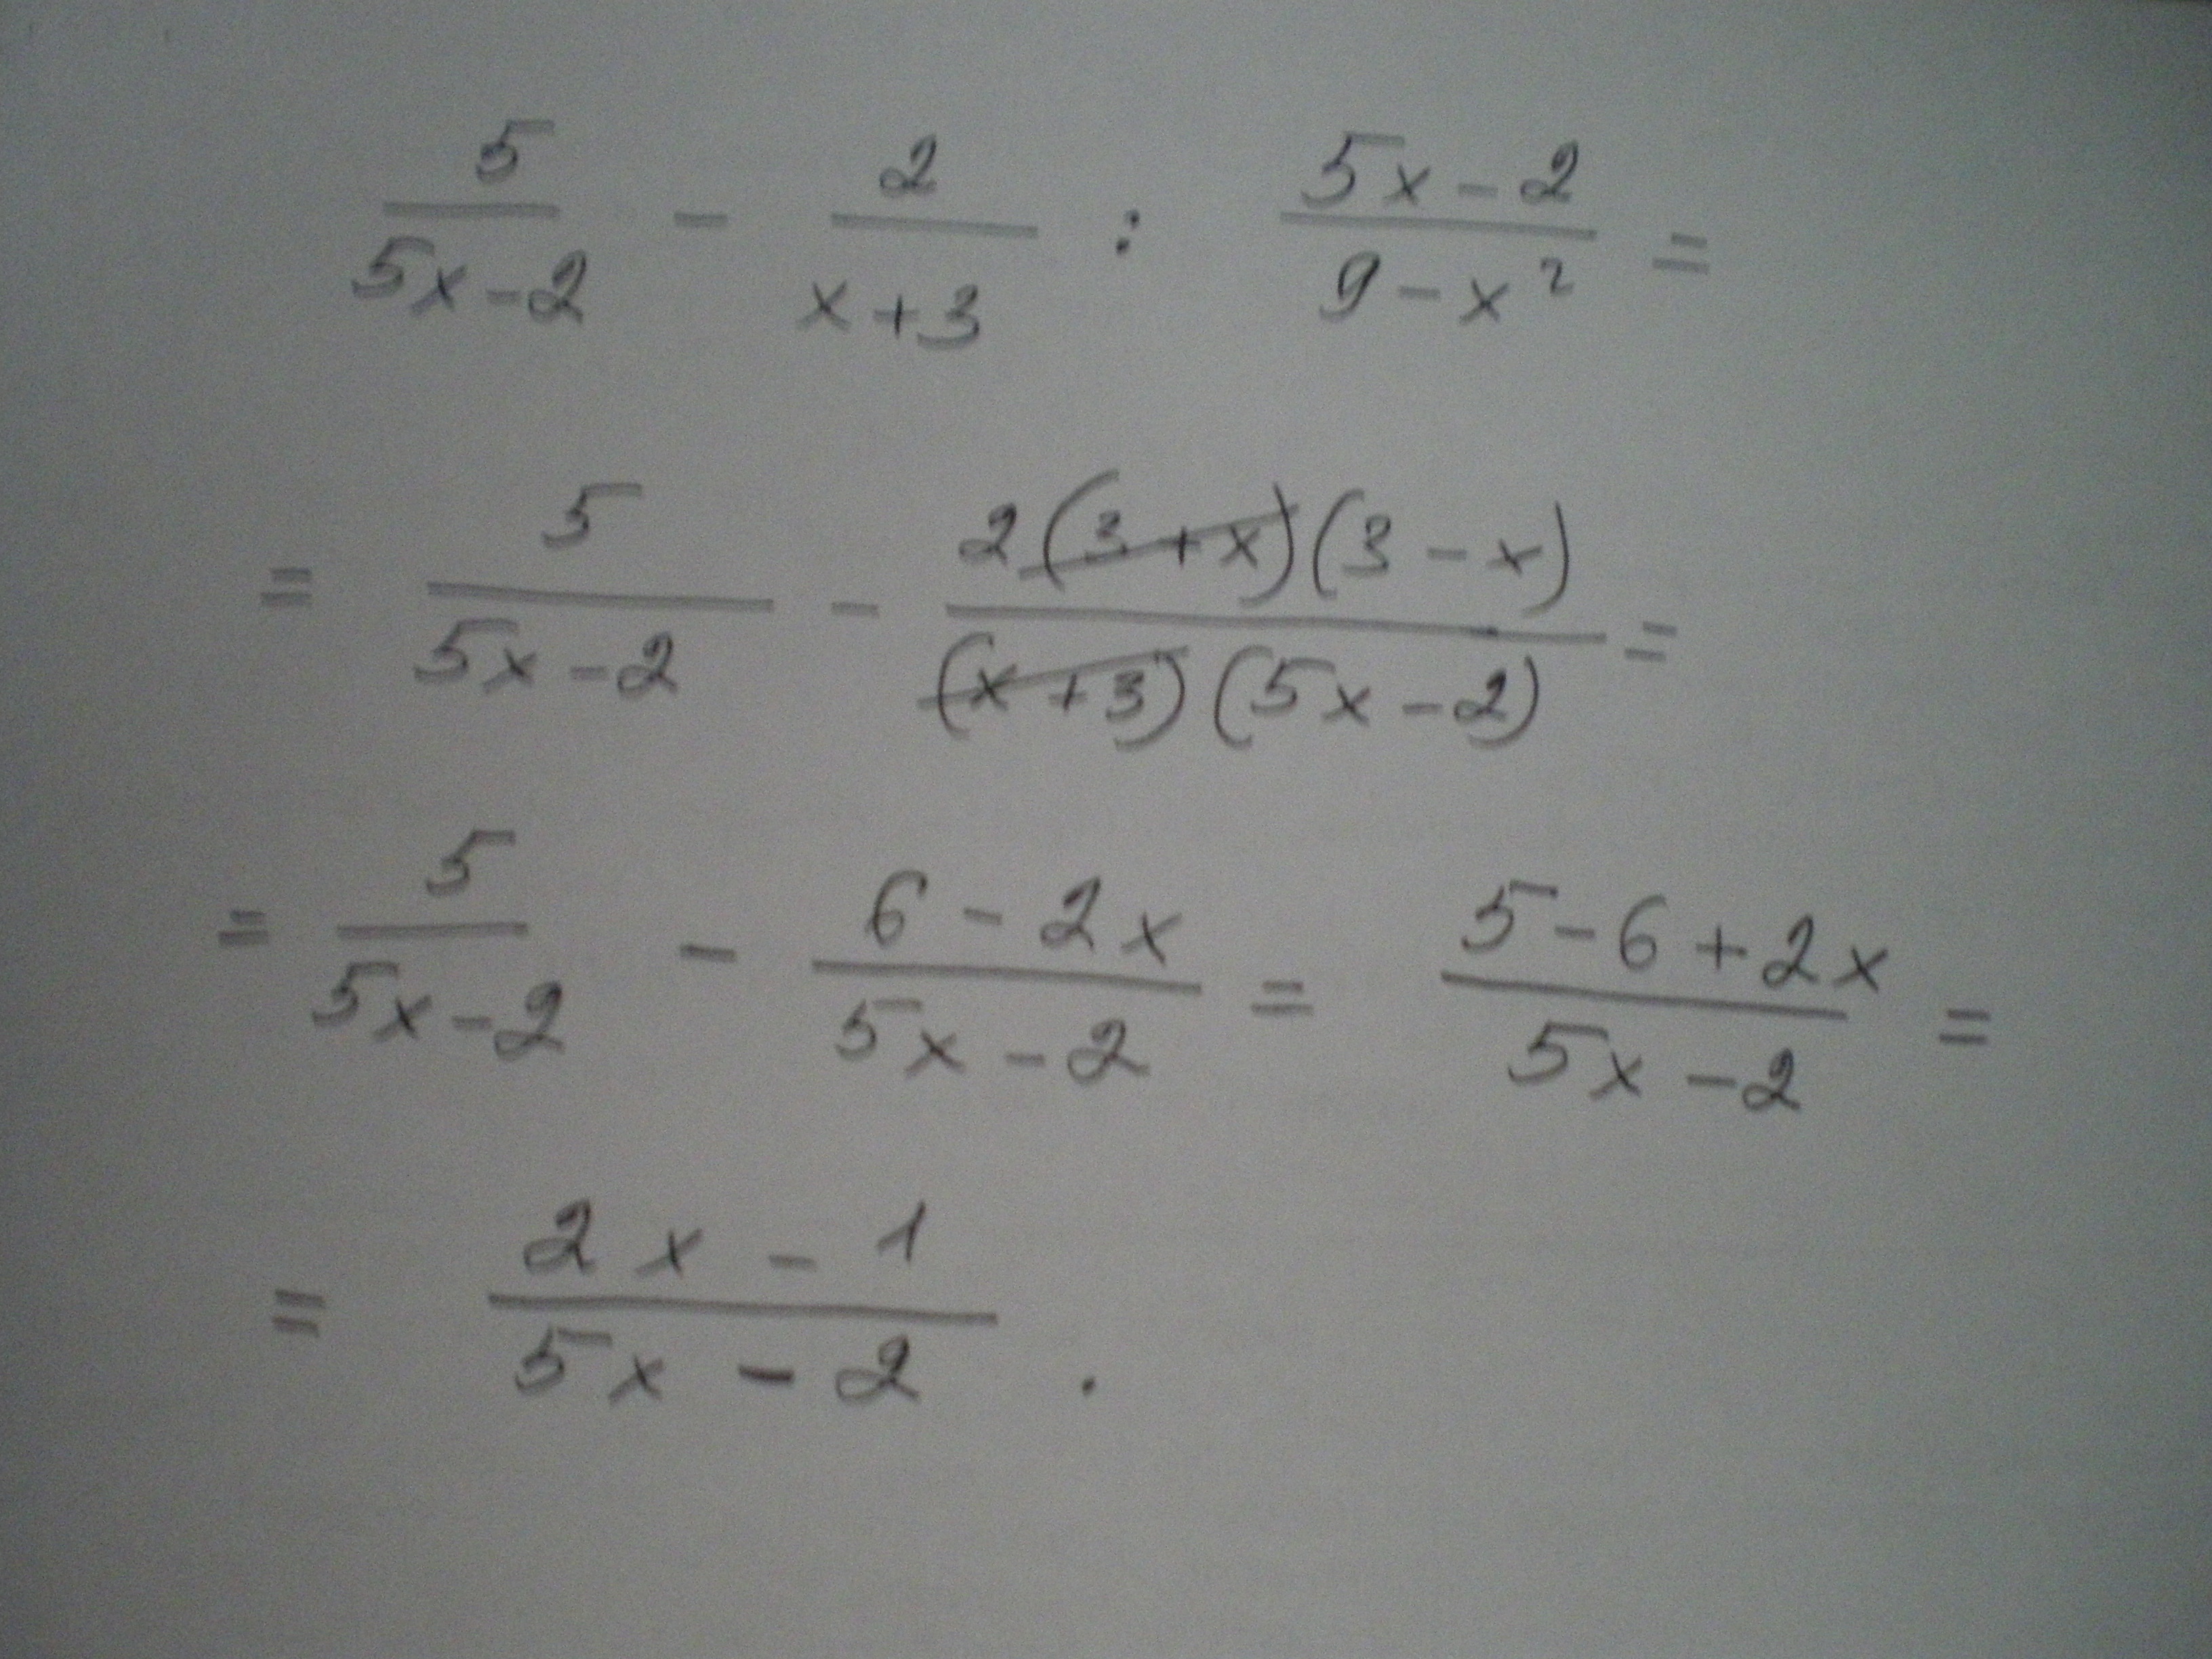 5/(5x-2) - 2/(x+3) : (5x-2)/(9-x²) =
= 5/(5x-2) - 2(3+x)(3-x)/((x+3)(5x-2)) =
= 5/(5x-2) - (6-2x)/(5x-2) = (5-6+2x)/(5x-2) =
= (2x-1)/(5x-2) .